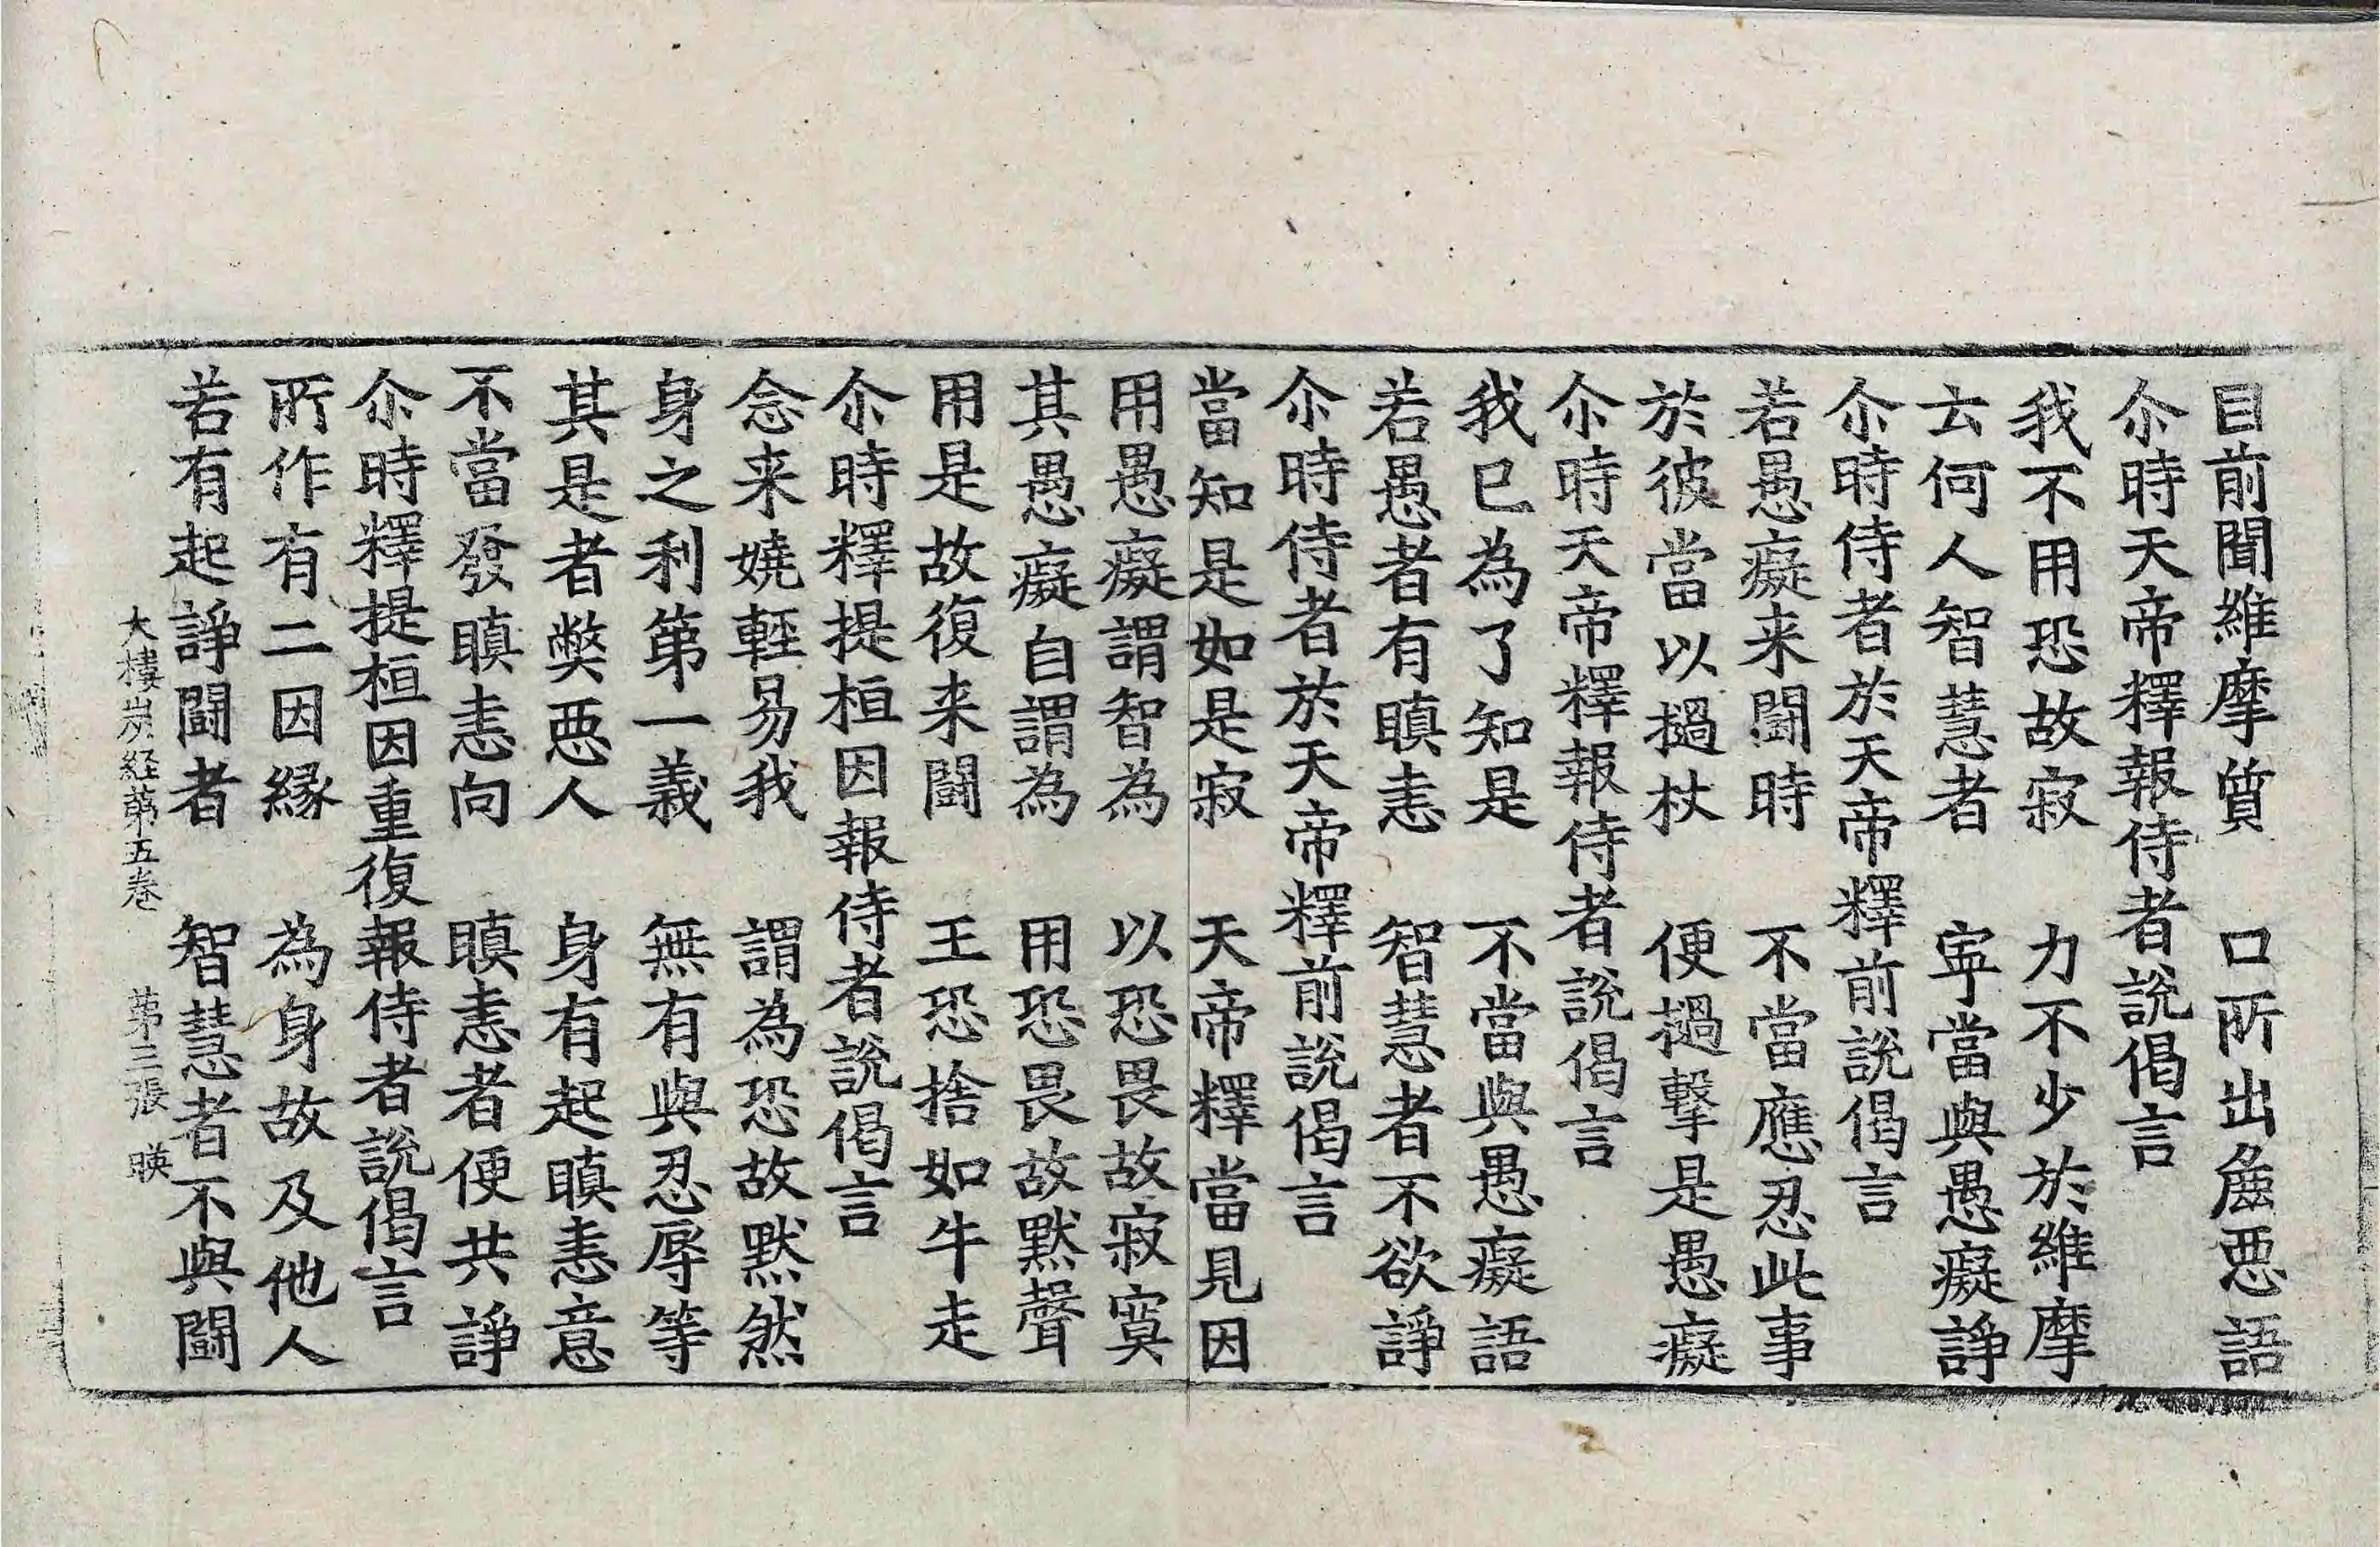 目前聞維摩質　口所出麁悪語
尒時天帝釋報侍者說偈言
我不用恐故寂　力不少於維摩
云何人智慧者　寕當與愚癡諍
尒時侍者於天帝釋前說偈言
若愚癡来闘時　不當應忍此事
於彼當以撾杖　便撾擊是愚癡
尒時天帝釋報侍者說偈言
我已為了知是　不當與愚癡語
若愚者有瞋恚　智慧者不欲諍
尒時侍者於天帝釋前說偈言
當知是如是寂　天帝釋當見因
用愚癡謂智為　以恐畏故寂寞
其愚癡自謂為　用恐畏故默聲
用是故復来闘　王恐捨如牛走
尒時釋提桓因報侍者說偈言
念来嬈輕易我　謂為恐故默然
身之利第一義　無有與忍辱等
其是者弊悪人　身有起瞋恚意
不當發瞋恚向　瞋恚者便共諍
尒時釋提桓因重復報侍者說偈言
所作有二因縁　為身故及他人
若有起諍闘者　智慧者不與闘
大樓炭経苐五巻　苐三張　暎